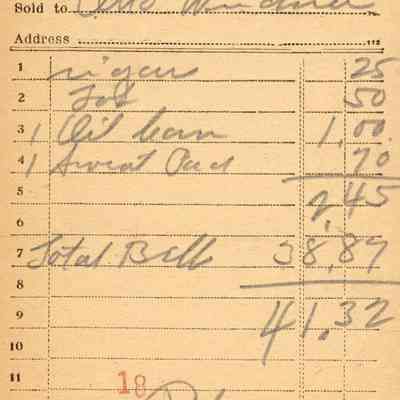 Sold to Otto
Address
1 cigars 25
2 Tob 50
3 1 Oil can 1,00
4 1 Sweat Pad 70
5 2,45
6
7 Total Bill 38,87
8
9 41,32
10
11
18